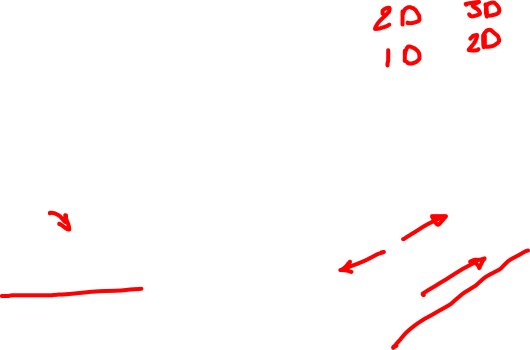 2D 3D
1D 2D